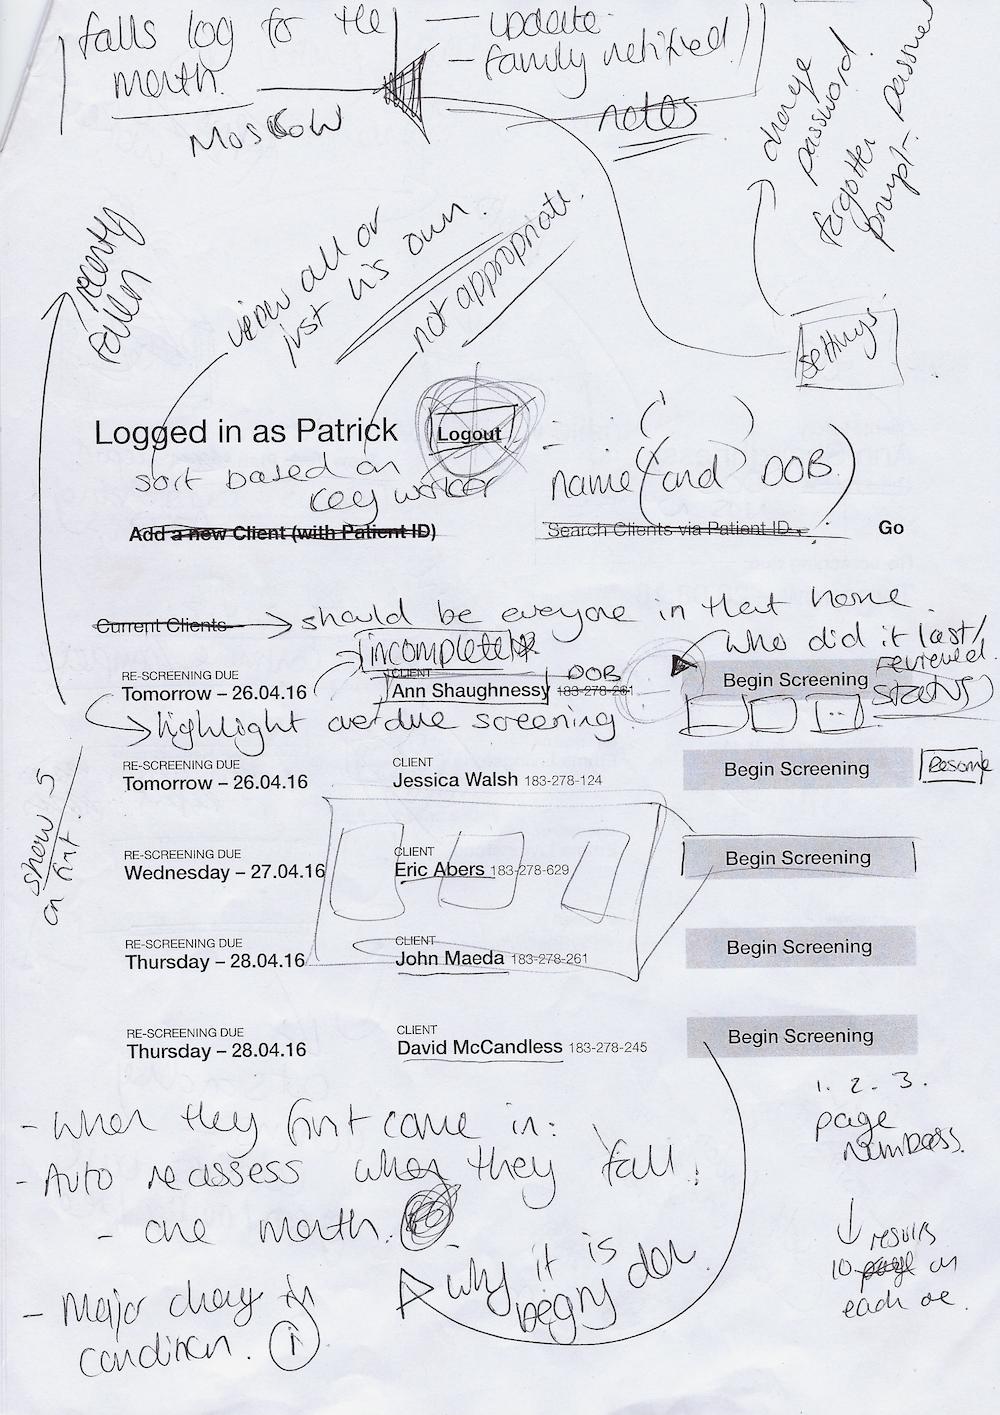 falls log for the
month.
Moscow
– update
– family notified
notes
change
password
forgotten
prompt
recently
fallen
view all or
just his own.
not appropriate.
Settings
Logged in as Patrick
Logout
sort based on
key worker
name (and DOB.)
Add a new Client (with Patient ID)
Search Clients via Patient ID
Go
Current Clients
should be everyone in that home.
incomplete
who did it last/
reviewed.
status
RE-SCREENING DUE
CLIENT
DOB
Tomorrow – 26.04.16
Ann Shaughnessy 183-278-261
Begin Screening
highlight overdue screening
RE-SCREENING DUE
CLIENT
Tomorrow – 26.04.16
Jessica Walsh 183-278-124
Begin Screening
Resume
show 5
on
RE-SCREENING DUE
CLIENT
Wednesday – 27.04.16
Eric Abers 183-278-629
Begin Screening
RE-SCREENING DUE
CLIENT
Thursday – 28.04.16
John Maeda 183-278-261
Begin Screening
RE-SCREENING DUE
CLIENT
Thursday – 28.04.16
David McCandless 183-278-245
Begin Screening
1. 2. 3.
page
numbers.
- when they first come in:
- Auto reassess when they fall.
- one month.
- why it is
being don
- Major chang in
condition. i
results
10 on
each one.